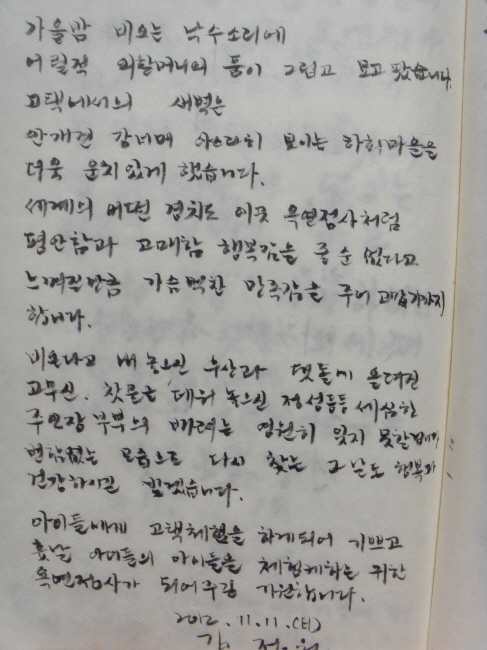 가을밤 비오는 낙수소리에
어릴적 외할머니의 품이 그립고 보고팠습니다.
고택에서의 새벽은
안개낀 강너머 아스라히 보이는 하회마을을
더욱 운치있게 했습니다.
세계의 어떤 경치도 이곳 옥연정사처럼
평안함과 고매함 행복감을 줄순 없다고
느껴질만큼 가슴벅찬 만족감을 주니 고맙기까지
합니다.
비온다고 내 놓으신 우산과 댓돌에 올려진
고무신. 찻물을 데워 놓으신 정성등등 세심한
주인장 부부의 배려는 영원히 잊지 못할겁니다
변함없는 모습으로 다시 찾는 그날도 행복과
건강하시길 빌겠습니다.
아이들에게 고택체험을 하게되어 기쁘고
훗날 아이들의 아이들을 체험케하는 귀한
옥연정사가 되어주길 기원합니다.
2012. 11. 11. (日)
김 정